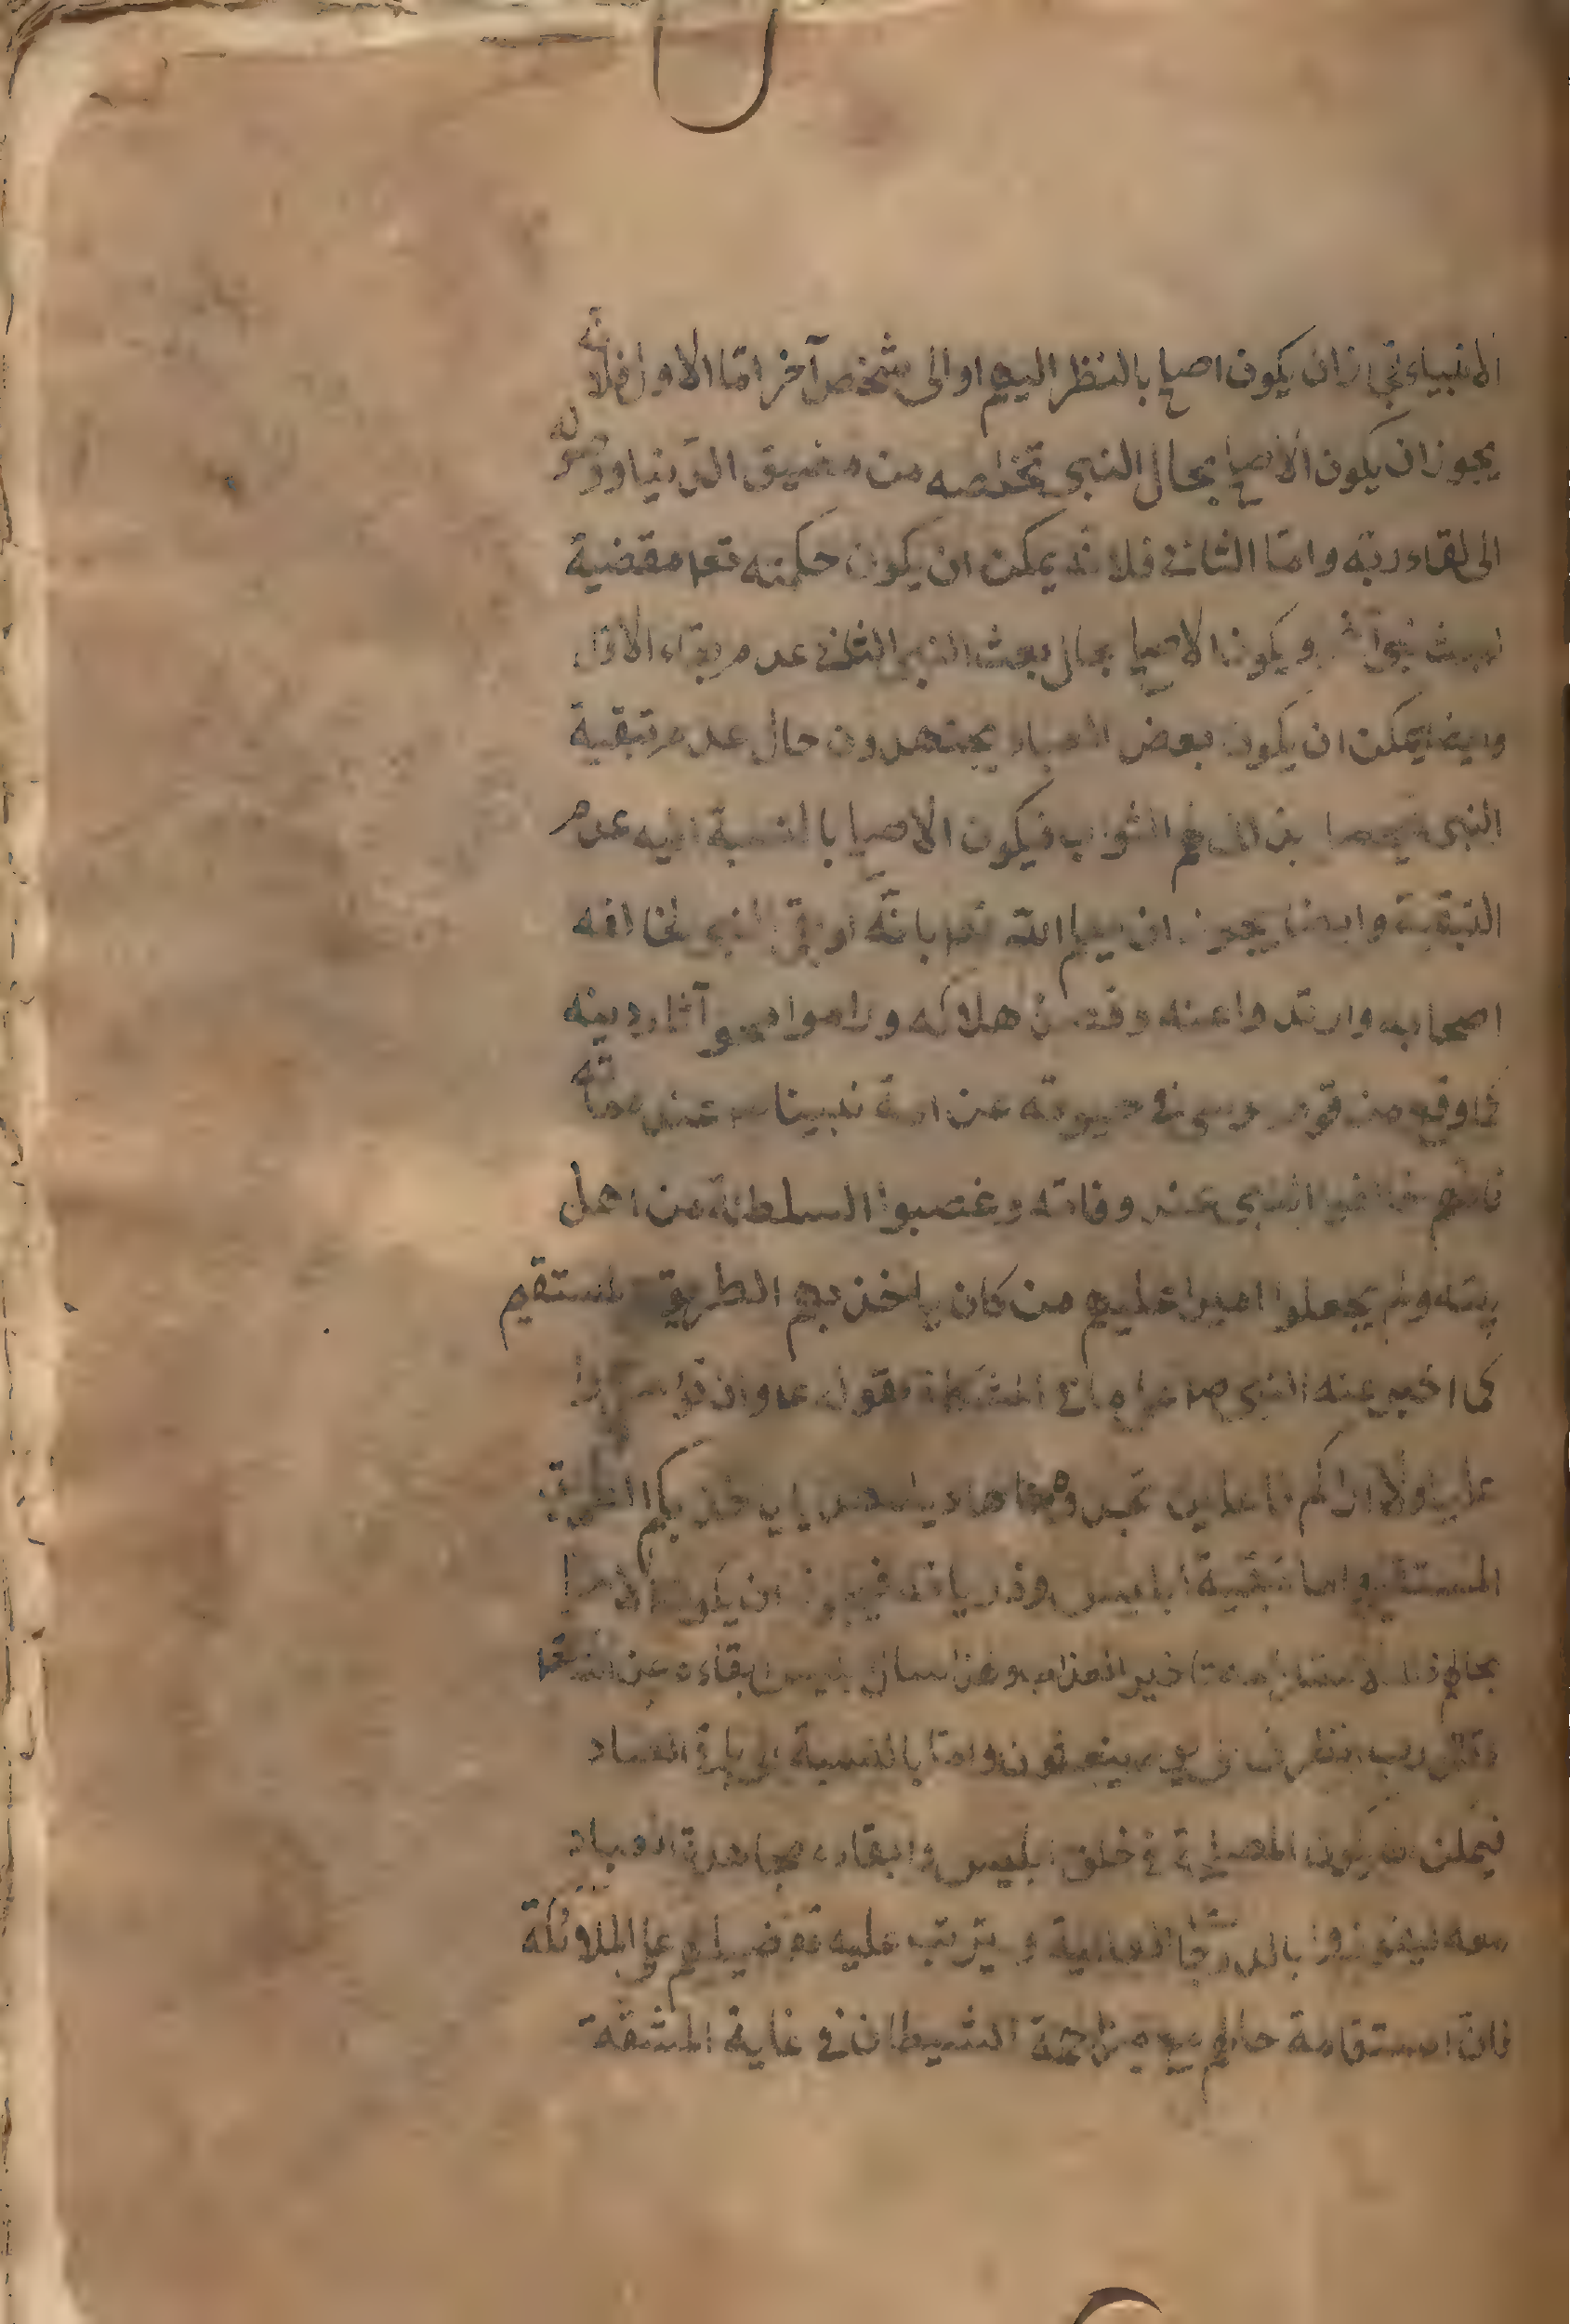 الانبياء فجازان يكون اصلح بالنظر اليهم او الى شخص آخر اما الاول فلانه
يجوز ان يكون الاصلح بحال النبى تخلصه من مضيق الدنيا ووصوله
الى لقاء ربه واما الثانى فلانه يمكن ان يكون حكمته تعا مقضية
ويكون الاصلح بحال بعث النبى الثانى عدم بقاء الاول
وايضا يمكن ان يكون بعض العباد يجتهدون حال عدم تبقية
النبى الثواب فيكون الاصلح بالنسبة اليه عدم
التبقية وايضا يجوز ان يعلم الله تعا بانه لو بقى النبى لخالفه
اصحابه وارتدوا عنه وقصدوا هلاكه وراموا محو آثار دينه
كما وقع من قوم موسى فى حيوته عن امة نبينا عند مماته
فانهم خالفوا النبى عند وفاته وغصبوا السلطنة من اهل
بيته ولم يجعلوا اميرا عليهم من كان ياخذ بهم الطريق المستقيم
كما اخبر عنه النبى بقوله وان تؤمروا
عليا ولا اراكم فاعلين تجدوه هاديا مهديا ياخذ بكم الطريق
المستقيم واما تبقية ابليس وذرياته فيجوز ان يكون الاصلح
بحالهم تاخير العذاب ولهذا سال ابليس بقاءه عن الله تعا
وقال رب انظرنى الى يوم يبعثون واما بالنسبة الى باقى العباد
فيمكن ان يكون المصلحة فى خلق ابليس وابقاءه مجاهدة العباد
معه ليفوزوا بالدرجات العالية ويترتب عليه تفضيلهم على الملائكة
فان استقامة حالهم مع مزاحمة الشيطان فى غاية المشقة